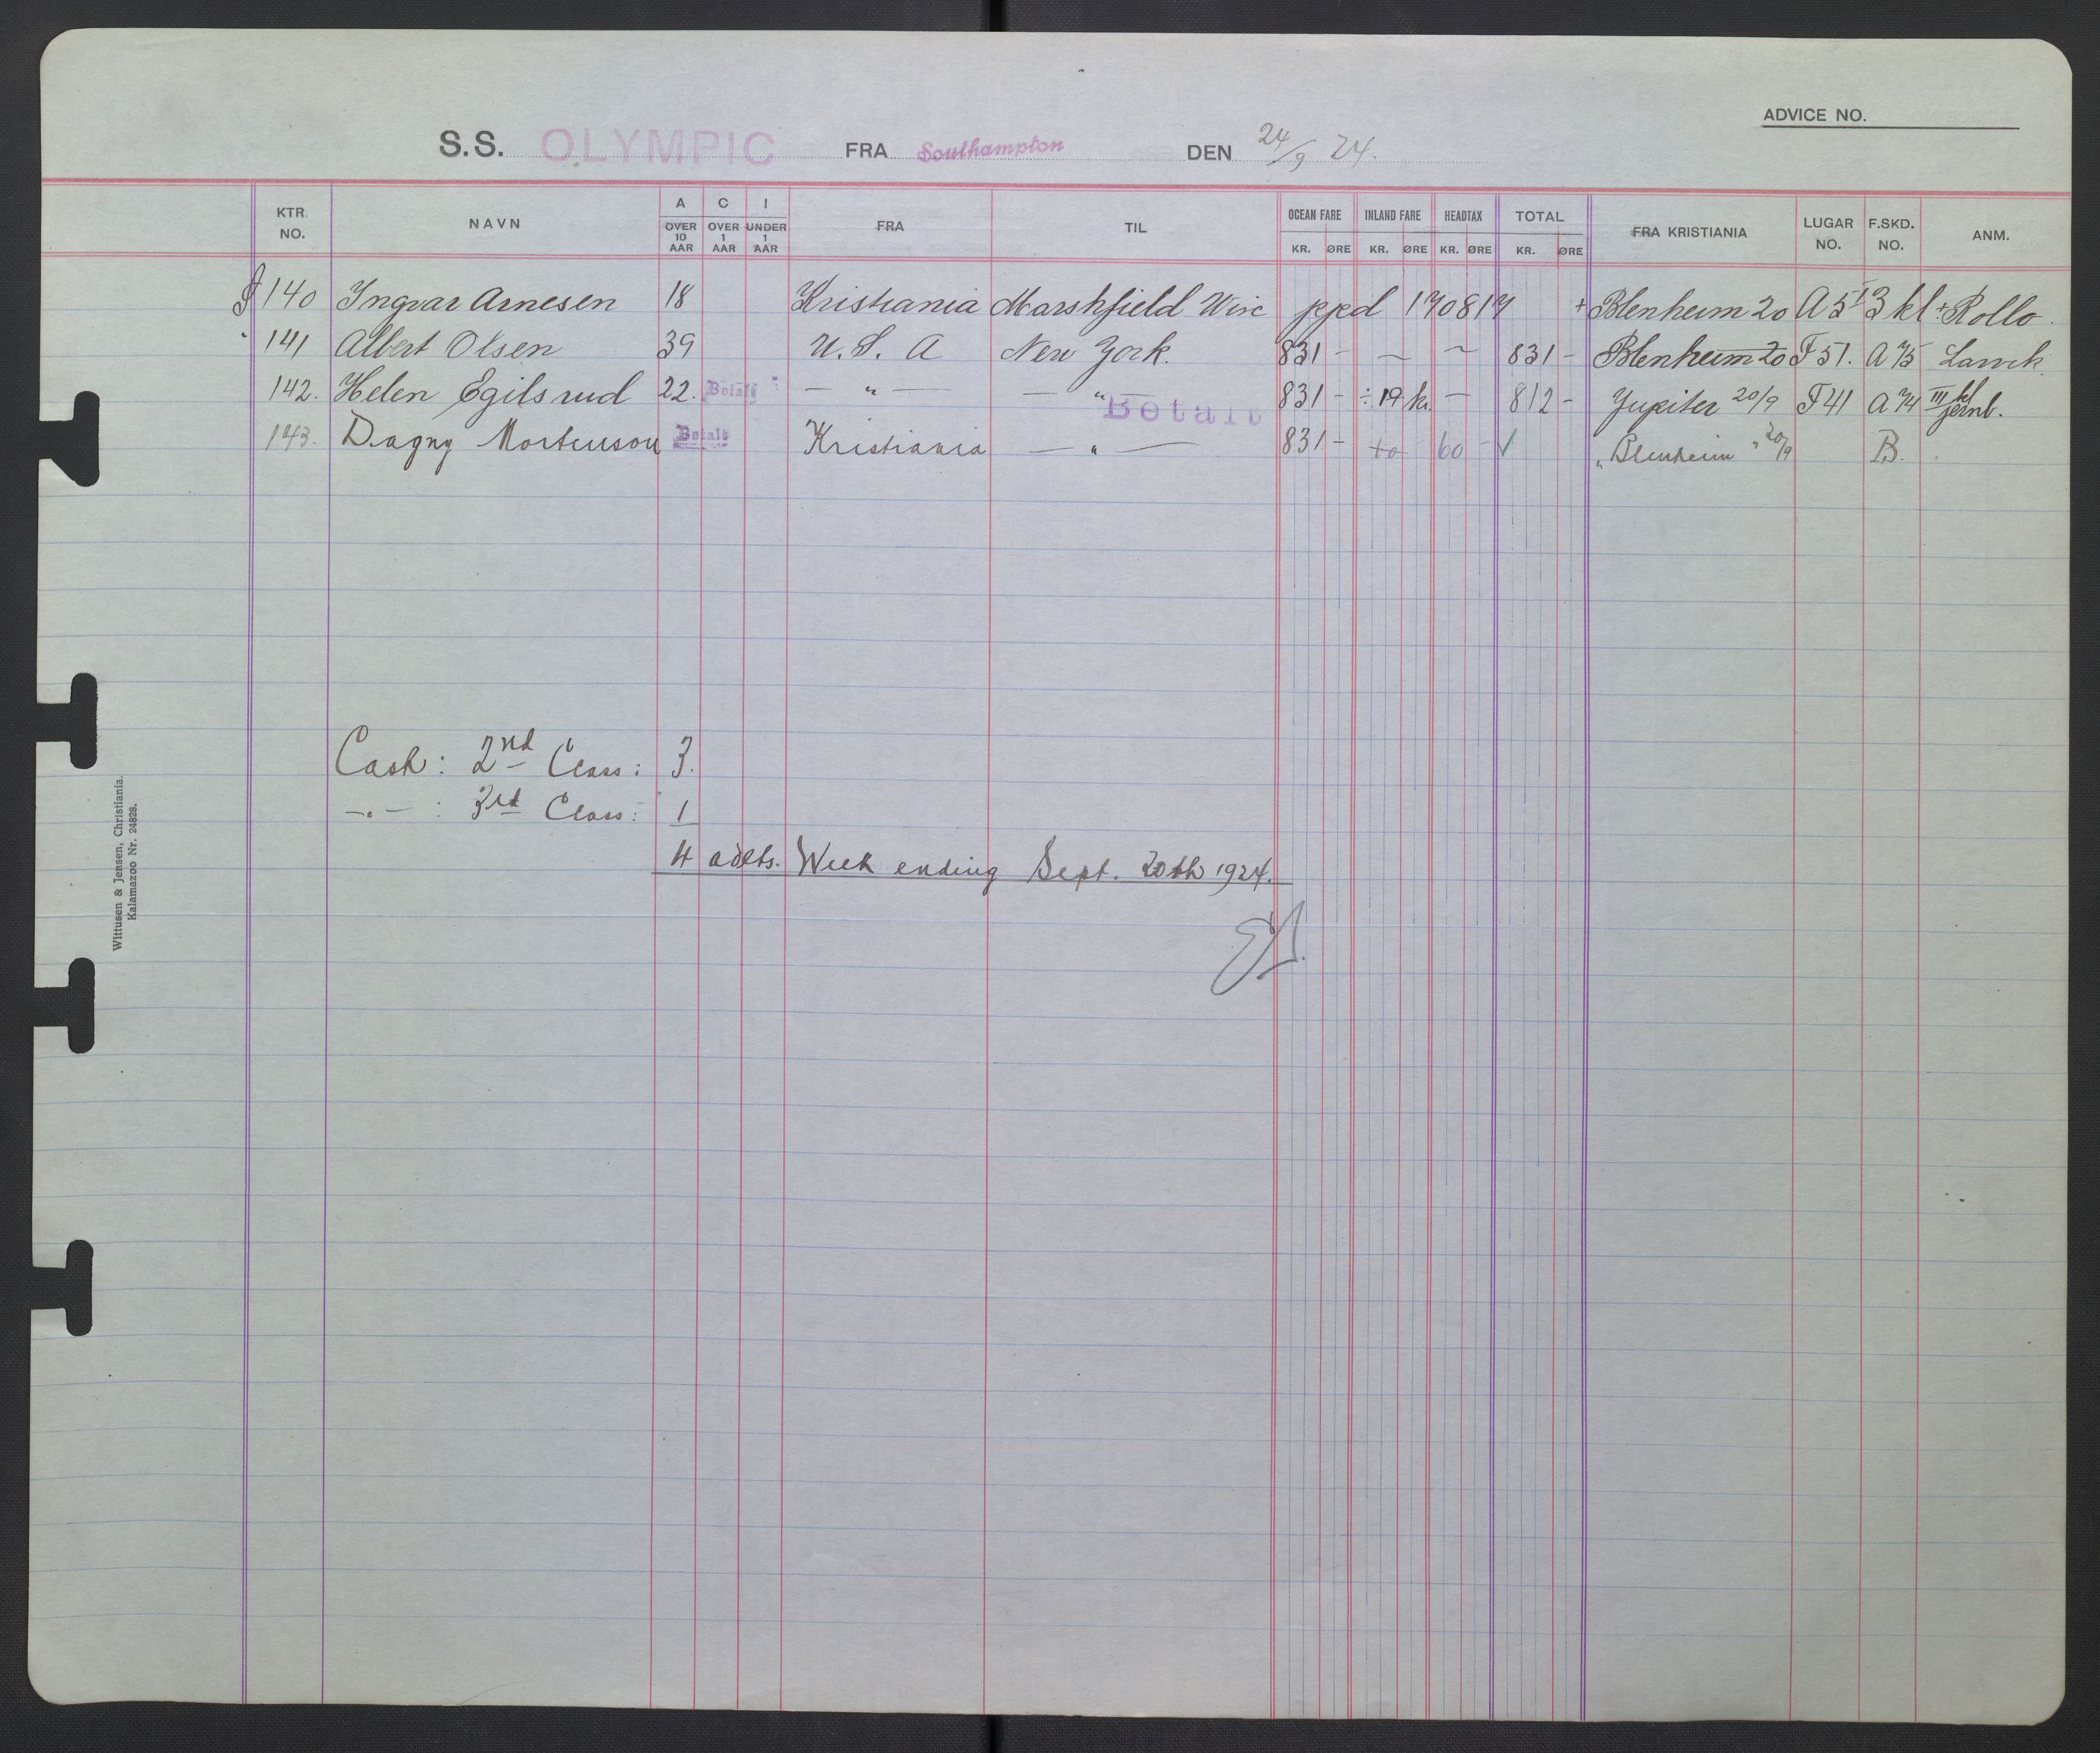 ADVICE NO.
S.S. OLYMPIC FRA Southampton DEN 24/9 24.
KTR. NO. NAVN A OVER 10 AAR C OVER 1 AAR I UNDER 1 AAR FRA TIL OCEAN FARE KR. ØRE INLAND FARE KR. ØRE HEADTAX KR. ØRE TOTAL KR. ØRE FRA KRISTIANIA LUGAR NO. F.SKD. NO. ANM.
140 Ingvar Arnesen 18 Kristiania Marshfield Wisc ppd 170817 + Blenheim 20 A 5 I 3 kl + Rollo.
" 141 Albert Olsen 39 U. S. A New York. 831 - — — 831 - Blenheim 20 F 51. A 75
142. Helen Egilsrud 22. Betalt " — " — — " — Betalt 831 - ÷ 19 kr. — 812 - Jupiter 20/9 F 41 A 74 III kl jernb.
143. Dagny Mortenson Betalt Kristiania — " — 831 - 60 - ✓ "Blenheim" 20/9 B.
Cash: 2nd Class: 3.
—"— : 3rd Class: 1
4 adlts. Week ending Sept. 20th 1924.
Wittusen & Jensen, Christiania.
Kalamazoo Nr. 24828.